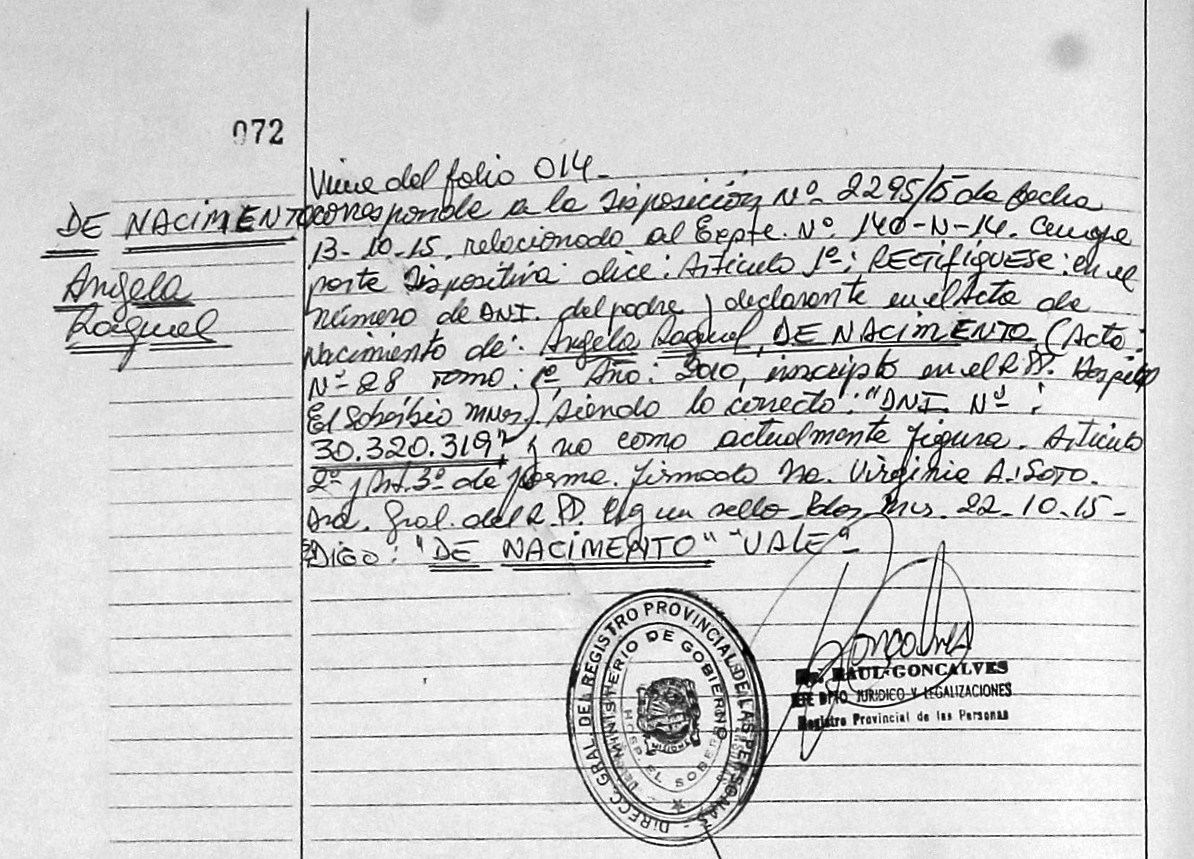 072
Viene del folio 014-
DE NACIMENTO corresponde a la Disposición Nº 2295/15 de fecha
13-10-15. relacionado al Expte. Nº 140-N-14. Cuya
Angela
parte Dispositiva dice: Artículo 1º: RECTIFIQUESE: en el
Raquel
número de DNI. del padre y declarante en el Acta de
Nacimiento de: Angela Raquel DE NACIMENTO (Acta:
Nº 28 Tomo: 1º, Año: 2010, inscripto en el R.P.P. Hospital
El Soberbio Mnes), siendo lo correcto: "DNI. Nº:
30.320.319", y no como actualmente figura. Artículo
2º y Art. 3º de forma. Firmado Virginia A. SOTO.
Gral. del R.P.P. un sello Pdas Mnes. 22-10-15-
Digo: "DE NACIMENTO" "VALE"-
DIRECC. GRAL. DEL REGISTRO PROVINCIAL DE LAS PERSONAS -
MINISTERIO DE GOBIERNO
HOSP. EL SOBERBIO
MISIONES
Goncalves
RAUL GONCALVES
JEFE DPTO JURIDICO Y LEGALIZACIONES
Registro Provincial de las Personas